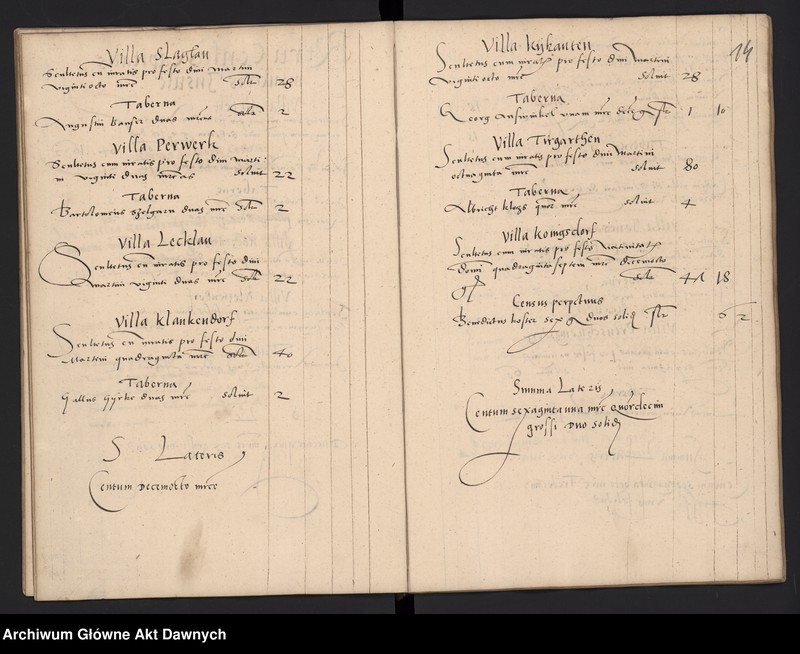 Villa Slaglau
Scultetus cu iuratis pro festo dni Martini
viginti octo mrc solt 28
Taberna
Augustin Bauser duas mrcas solt 2
Villa Perwerk
Scultetus cum iuratis pro festo dni Marti
ni viginti duas mrcas soluit 22
Taberna
Bartolomeus Spelgarn duas mrc solt 2
Villa Lecklau
Scultetus cu iuratis pro festo dni
Martini viginti duas mrc solt 22
Villa Klankendorf
Scultetus cu iuratis pro festo dni
Martini quadraginta mrc solt 40
Taberna
Gallus Gyrke duas mrc soluit 2
S Lateris
Centum decemocto mrce
14
Villa Kykauten
Scultetus cum iurat pro festo dni Martini
viginti octo mrc soluit 28
Taberna
Georg unam mrc dece g slt 1 10
Villa Tirgarthen
Scultetus cum iuratis pro festo dni Martini
octuaginta mrc soluit 80
Taberna
Albricht Klogs quor mrc soluit 4
Villa Komgsdorf
Scultetus cum iuratis pro festo Natiuitat
domi quadraginta septem mrc decemocto
g solt 47 18
Census perpetuus
Benedictus hoster sex g duos solid slt 6 2
Summa Lateris
Centum sexaginta una mrc quordecim
grossi duo solid
Archiwum Główne Akt Dawnych